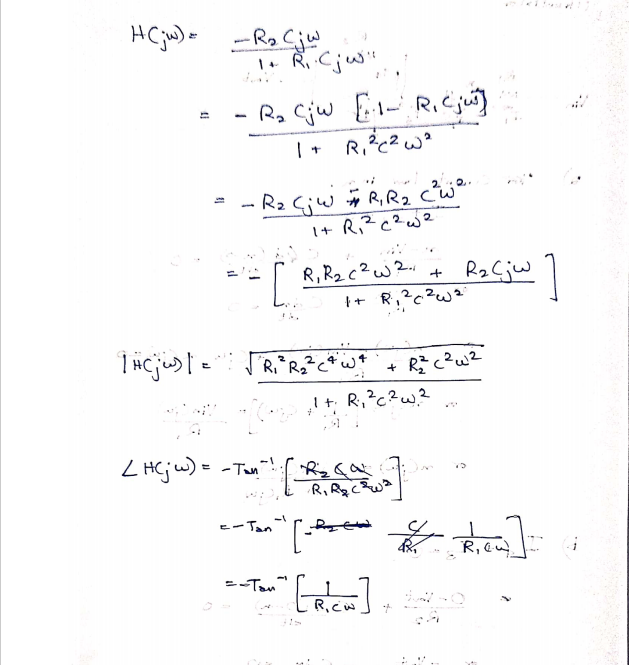 H(jω) = -R₂Cjω / 1 + R₁Cjω
= -R₂Cjω [1 - R₁Cjω] / 1 + R₁²C²ω²
= -R₂Cjω - R₁R₂C²ω² / 1 + R₁²C²ω²
= -[ R₁R₂C²ω² + R₂Cjω / 1 + R₁²C²ω² ]
|H(jω)| = √(R₁²R₂²C⁴ω⁴ + R₂²C²ω²) / 1 + R₁²C²ω²
∠H(jω) = -Tan⁻¹ [ R₂Cω / R₁R₂C²ω² ]
= -Tan⁻¹ [ 1 / R₁Cω ]
= -Tan⁻¹ [ 1 / R₁Cω ]